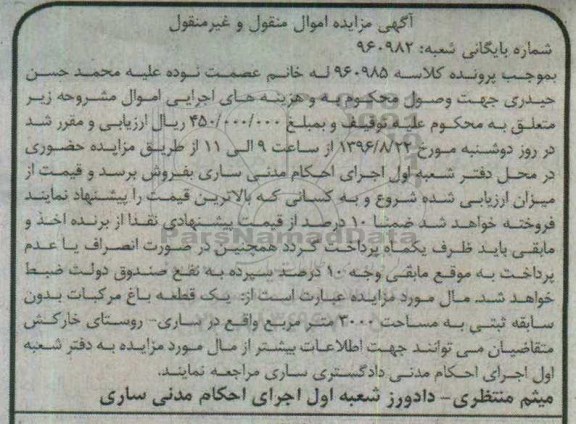 آگهی مزایده اموال منقول و غیرمنقول
شماره بایگانی شعبه: ۹۶۰۹۸۲
بموجب پرونده کلاسه ۹۶۰۹۸۵ له خانم عصمت نوده علیه محمد حسن
حیدری جهت وصول محکوم به و هزینه های اجرایی اموال مشروحه زیر
متعلق به محکوم علیه توقیف و بمبلغ ۴۵۰/۰۰۰/۰۰۰ ریال ارزیابی و مقرر شد
در روز دوشنبه مورخ ۱۳۹۶/۸/۲۲ از ساعت ۹ الی ۱۱ از طریق مزایده حضوری
در محل دفتر شعبه اول اجرای احکام مدنی ساری بفروش برسد و قیمت از
میزان ارزیابی شده شروع و به کسانی که بالاترین قیمت را پیشنهاد نمایند
فروخته خواهد شد ضمنا ۱۰ درصد از قیمت پیشنهادی نقدا از برنده اخذ و
مابقی باید ظرف یکماه پرداخت گردد همچنین در صورت انصراف یا عدم
پرداخت به موقع مابقی وجه ۱۰ درصد سپرده به نفع صندوق دولت ضبط
خواهد شد. مال مورد مزایده عبارت است از: یک قطعه باغ مرکبات بدون
سابقه ثبتی به مساحت ۳۰۰۰ متر مربع واقع در ساری- روستای خارکش
متقاضیان می توانند جهت اطلاعات بیشتر از مال مورد مزایده به دفتر شعبه
اول اجرای احکام مدنی دادگستری ساری مراجعه نمایند.
میثم منتظری- دادورز شعبه اول اجرای احکام مدنی ساری
ParsNamadData